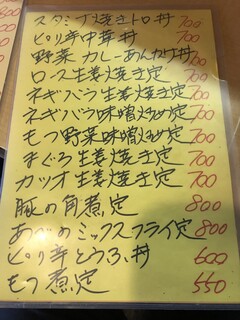 スタミナ焼きトロ丼 700
ピリ辛中華丼 700
野菜カレーあんかけ丼 700
ロース生姜焼き定 700
ネギバラ生姜焼き定 700
ネギバラ味噌炒め定 700
もつ野菜味噌炒め定 700
まぐろ生姜焼き定 700
カツオ生姜焼き定 700
豚の角煮定 800
ミックスフライ定 800
ピリ辛とうふ丼 600
もつ煮定 550